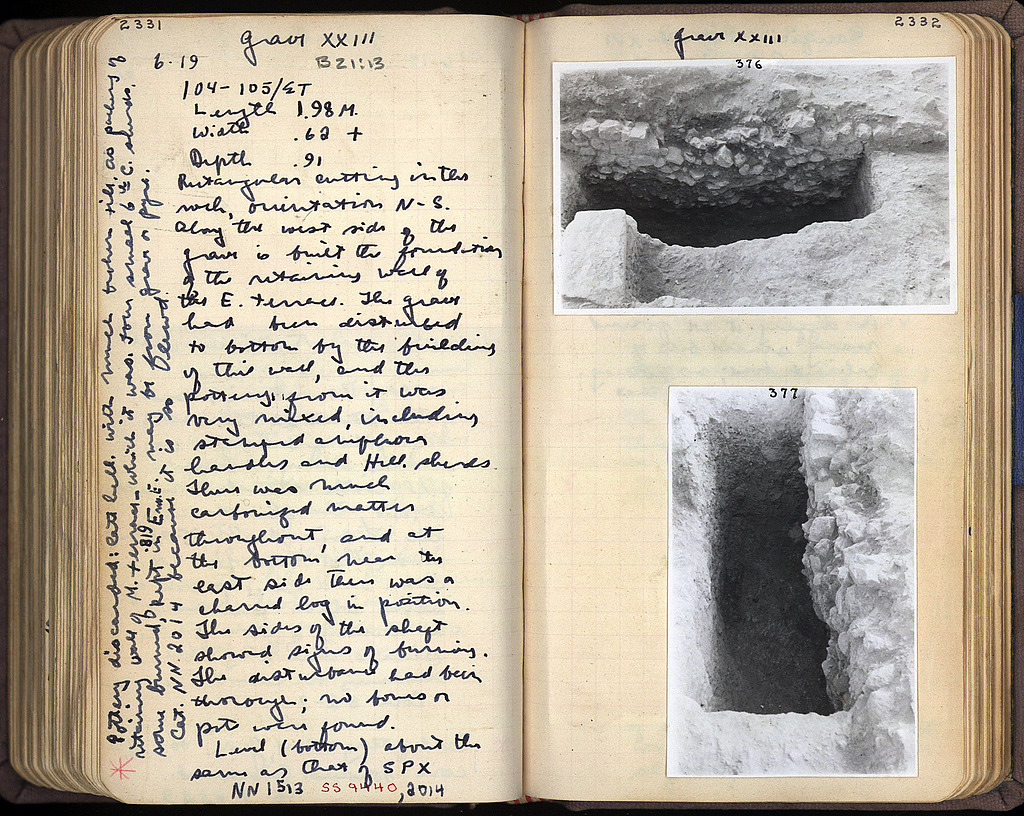 2331
grave XXIII
6-19
B 21:13
104-105/ΣT
Length 1.98 M.
Width .62 +
Depth .91
Rectangular cutting in the
rock, orientation N-S.
Along the west side of the
grave is built the foundation
of the retaining wall of
the E. terrace. The grave
had been disturbed
to bottom by the building
of this wall, and the
pottery from it was
very mixed, including
stamped amphora
handles and Hell. sherds.
There was much
carbonized matter
throughout, and at
the bottom near the
east side there was a
charred log in position.
The sides of the shaft
showed signs of burning.
The disturbance had been
thorough; no bones or
pots were found.
Level (bottom) about the
same as that of SPX
NN 1513 SS 9440, 2014
Pottery discarded: Late hell. with much broken tile, as packing of
retaining wall of M. terrace - which it was. Four small 6th C. sherds,
some burned, kept in E.m.E. may be from grave or pyre.
819
Cat. NN 2014 because it is so
2332
grave XXIII
376
377